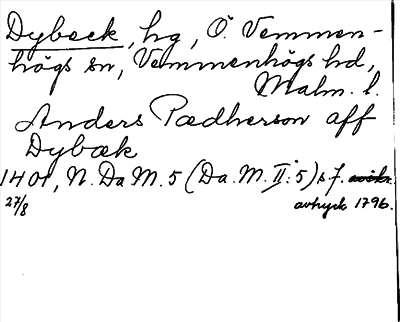 Dybeck, hg, Ö. Vemmen-
högs sn, Vemmenhögs hd,
Malm. l.
Anders Pædherson aff
Dybæk
1401, N. Da M. 5 (Da. M. II:5) s f.
27/8 avtryck 1796.